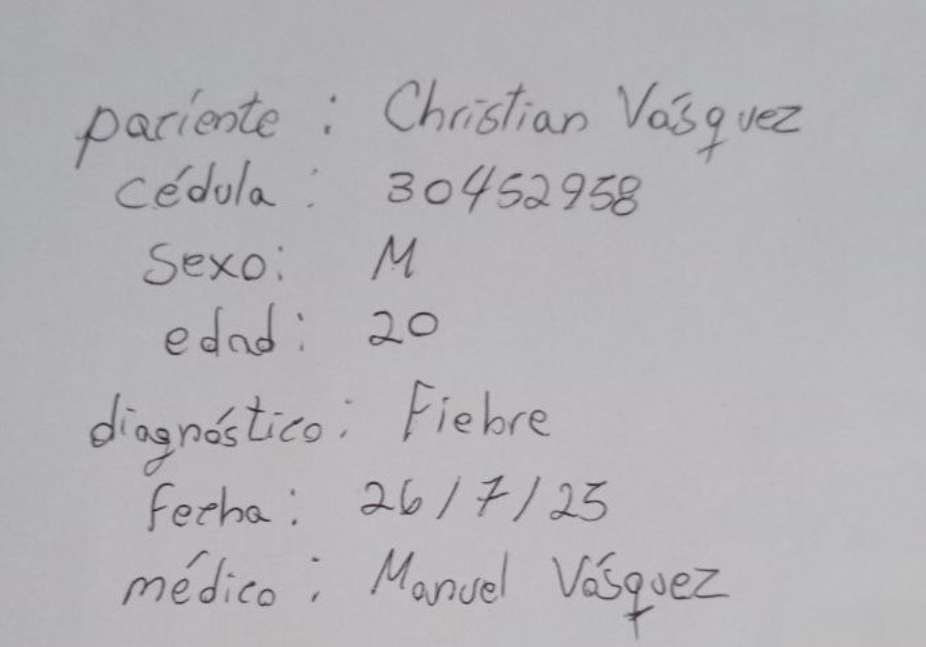 paciente : Christian Vásquez
cédula : 30452958
Sexo: M
edad: 20
diagnóstico: Fiebre
fecha: 26/7/25
médico : Manuel Vásquez